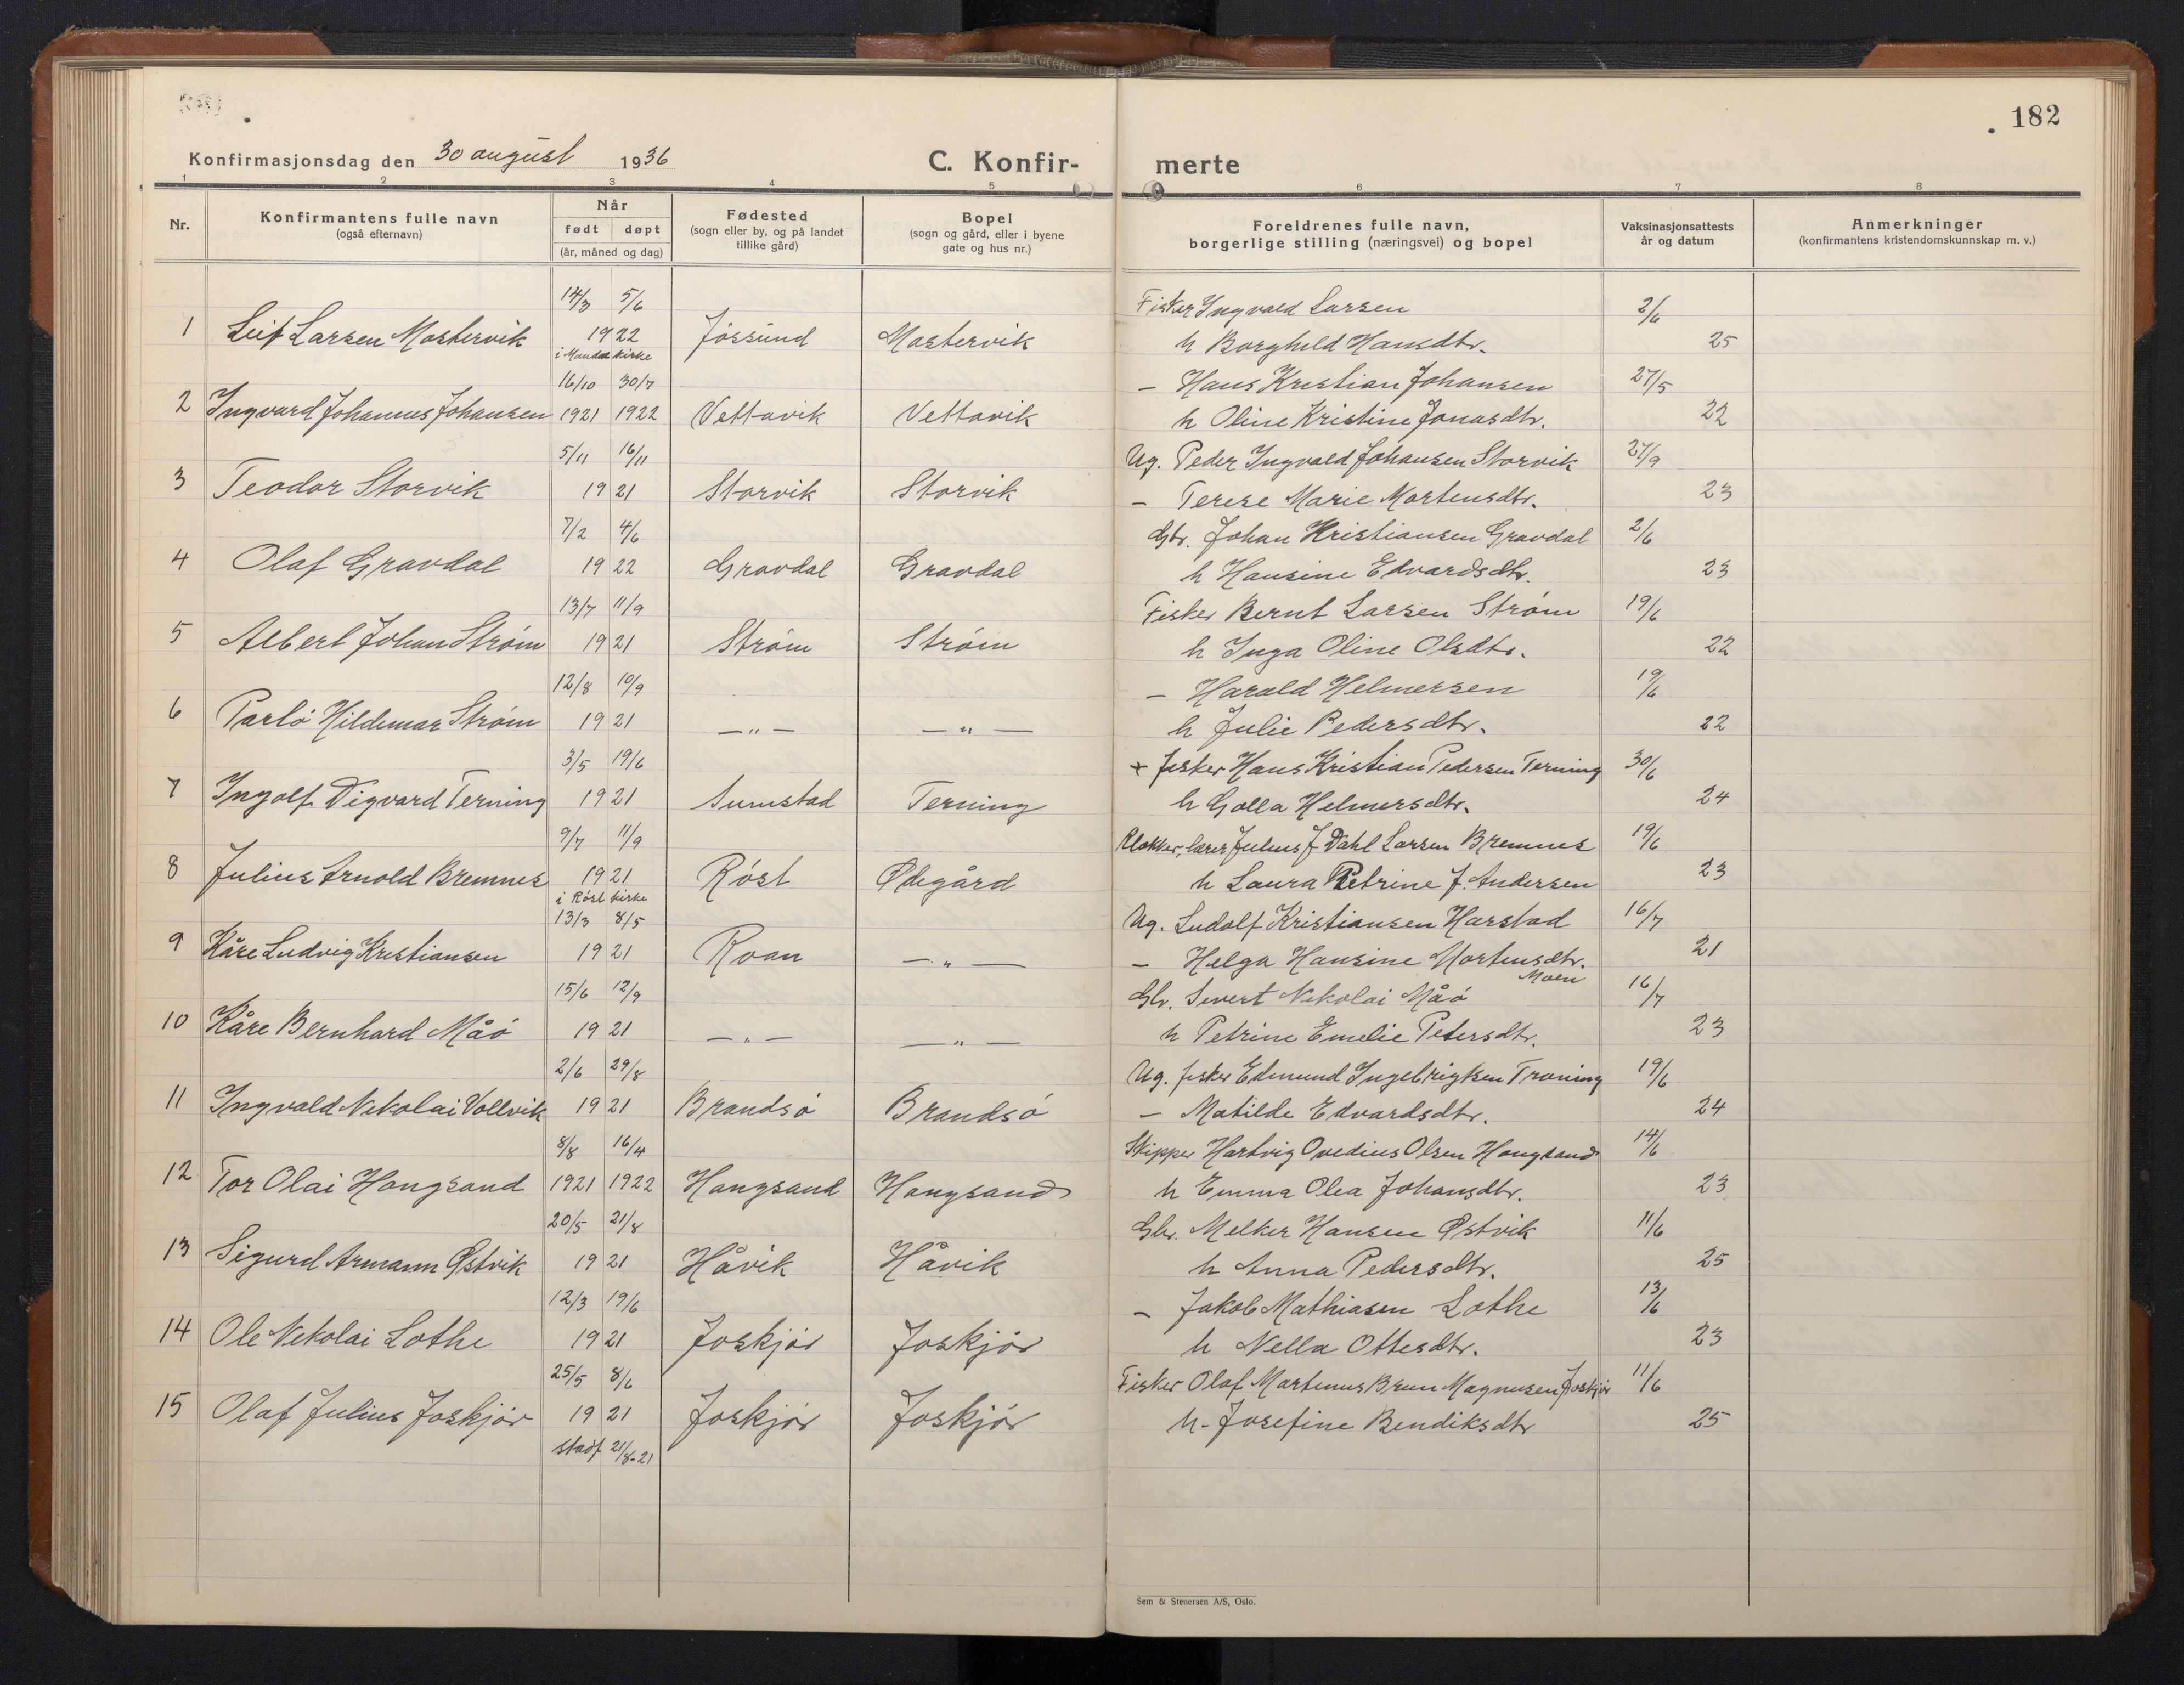 182
Konfirmasjonsdag den 30 august 1936
C. Konfir-merte
1 2 3 4 5 6 7 8
Nr.
Konfirmantens fulle navn
(også efternavn)
Når
født døpt
(år, måned og dag)
Fødested
(sogn eller by, og på landet
tillike gård)
Bopel
(sogn og gård, eller i byene
gate og hus nr.)
Foreldrenes fulle navn,
borgerlige stilling (næringsvei) og bopel
Vaksinasjonsattests
år og datum
Anmerkninger
(konfirmantens kristendomskunnskap m. v.)
14/3 5/6 Fisker Ingvald Larsen 2/6
1 Leif Larsen Mostervik 1922 Jøssund Mostervik h Borghild Hansdtr. 25
i Mandal kirke
16/10 30/7 — Hans Kristian Johansen 27/5
2 Ingvard Johannes Johansen 1921 1922 Vettavik Vettavik h Oline Kristine Jonasdtr. 22
5/11 16/11 Ug. Peder Ingvald Johansen Storvik 27/9
3 Teodor Storvik 1921 Storvik Storvik — Terese Marie Mortensdtr. 23
7/2 4/6 Gbr. Johan Kristiansen Gravdal 2/6
4 Olaf Gravdal 1922 Gravdal Gravdal h Hansine Edvardsdtr. 23
13/7 11/9 Fisker Bernt Larsen Strøm 19/6
5 Albert Johan Strøm 1921 Strøm Strøm h Inga Oline Olsdtr. 22
12/8 10/9 — Harald Helmersen 19/6
6 Parlo Hildemar Strøm 1921 —"— —"— h Julie Pedersdtr. 22
3/5 19/6 + fisker Hans Kristian Pedersen Terning 30/6
7 Ingolf Digvard Terning 1921 Sumstad Terning h Golla Helmersdtr. 24
9/7 11/9 Klokker, lærer Julius J Dahl Larsen Bremnes 19/6
8 Julius Arnold Bremnes 1921 Røst Ødegård h Laura Petrine J. Andersen 23
i Røst kirke
13/3 8/5 Ug. Ludolf Kristiansen Harstad 16/7
9 Kåre Ludvig Kristiansen 1921 Roan —"— — Helga Hansine Mortensdtr. 21
Moen
15/6 12/9 Gbr. Sivert Nikolai Måø 16/7
10 Kåre Bernhard Måø 1921 —"— —"— h Petrine Emelie Petersdtr. 23
2/6 29/8 Ug. fisker Edmund Ingebrigtsen Traning 19/6
11 Ingvald Nikolai Vollvik 1921 Brandsø Brandsø — Matilde Edvardsdtr. 24
8/8 16/4 Skipper Hartvig Ovedius Olsen Hongsand 14/6
12 Tor Olai Hongsand 1921 1922 Hongsand Hongsand h Emma Olea Johansdtr. 23
20/5 21/8 Gbr. Melker Hansen Østvik 11/6
13 Sigurd Armann Østvik 1921 Håvik Håvik h Anna Pedersdtr. 25
12/3 19/6 — Jakob Mathiasen Lothe 13/6
14 Ole Nikolai Lothe 1921 Joskjør Joskjør h Nella Ottesdtr. 23
25/5 8/6 Fisker Olaf Martinus Brun Magnusen Joskjør 11/6
15 Olaf Julius Joskjør 1921 Joskjør Joskjør h. Josefine Bendiksdtr 25
stadf 21/8-21
Sem & Stenersen A/S, Oslo.